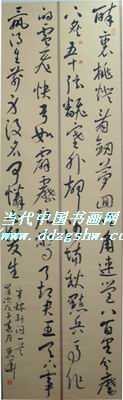 醉裏挑燈看劍夢回吹角連營八百里分麾
下炙五十弦翻塞外聲沙場秋點兵馬作
的盧飛快弓如霹靂弦驚了却君王天下事
贏得生前身後名可憐白髮生
当代中国书画网
www.ddzgshw.com